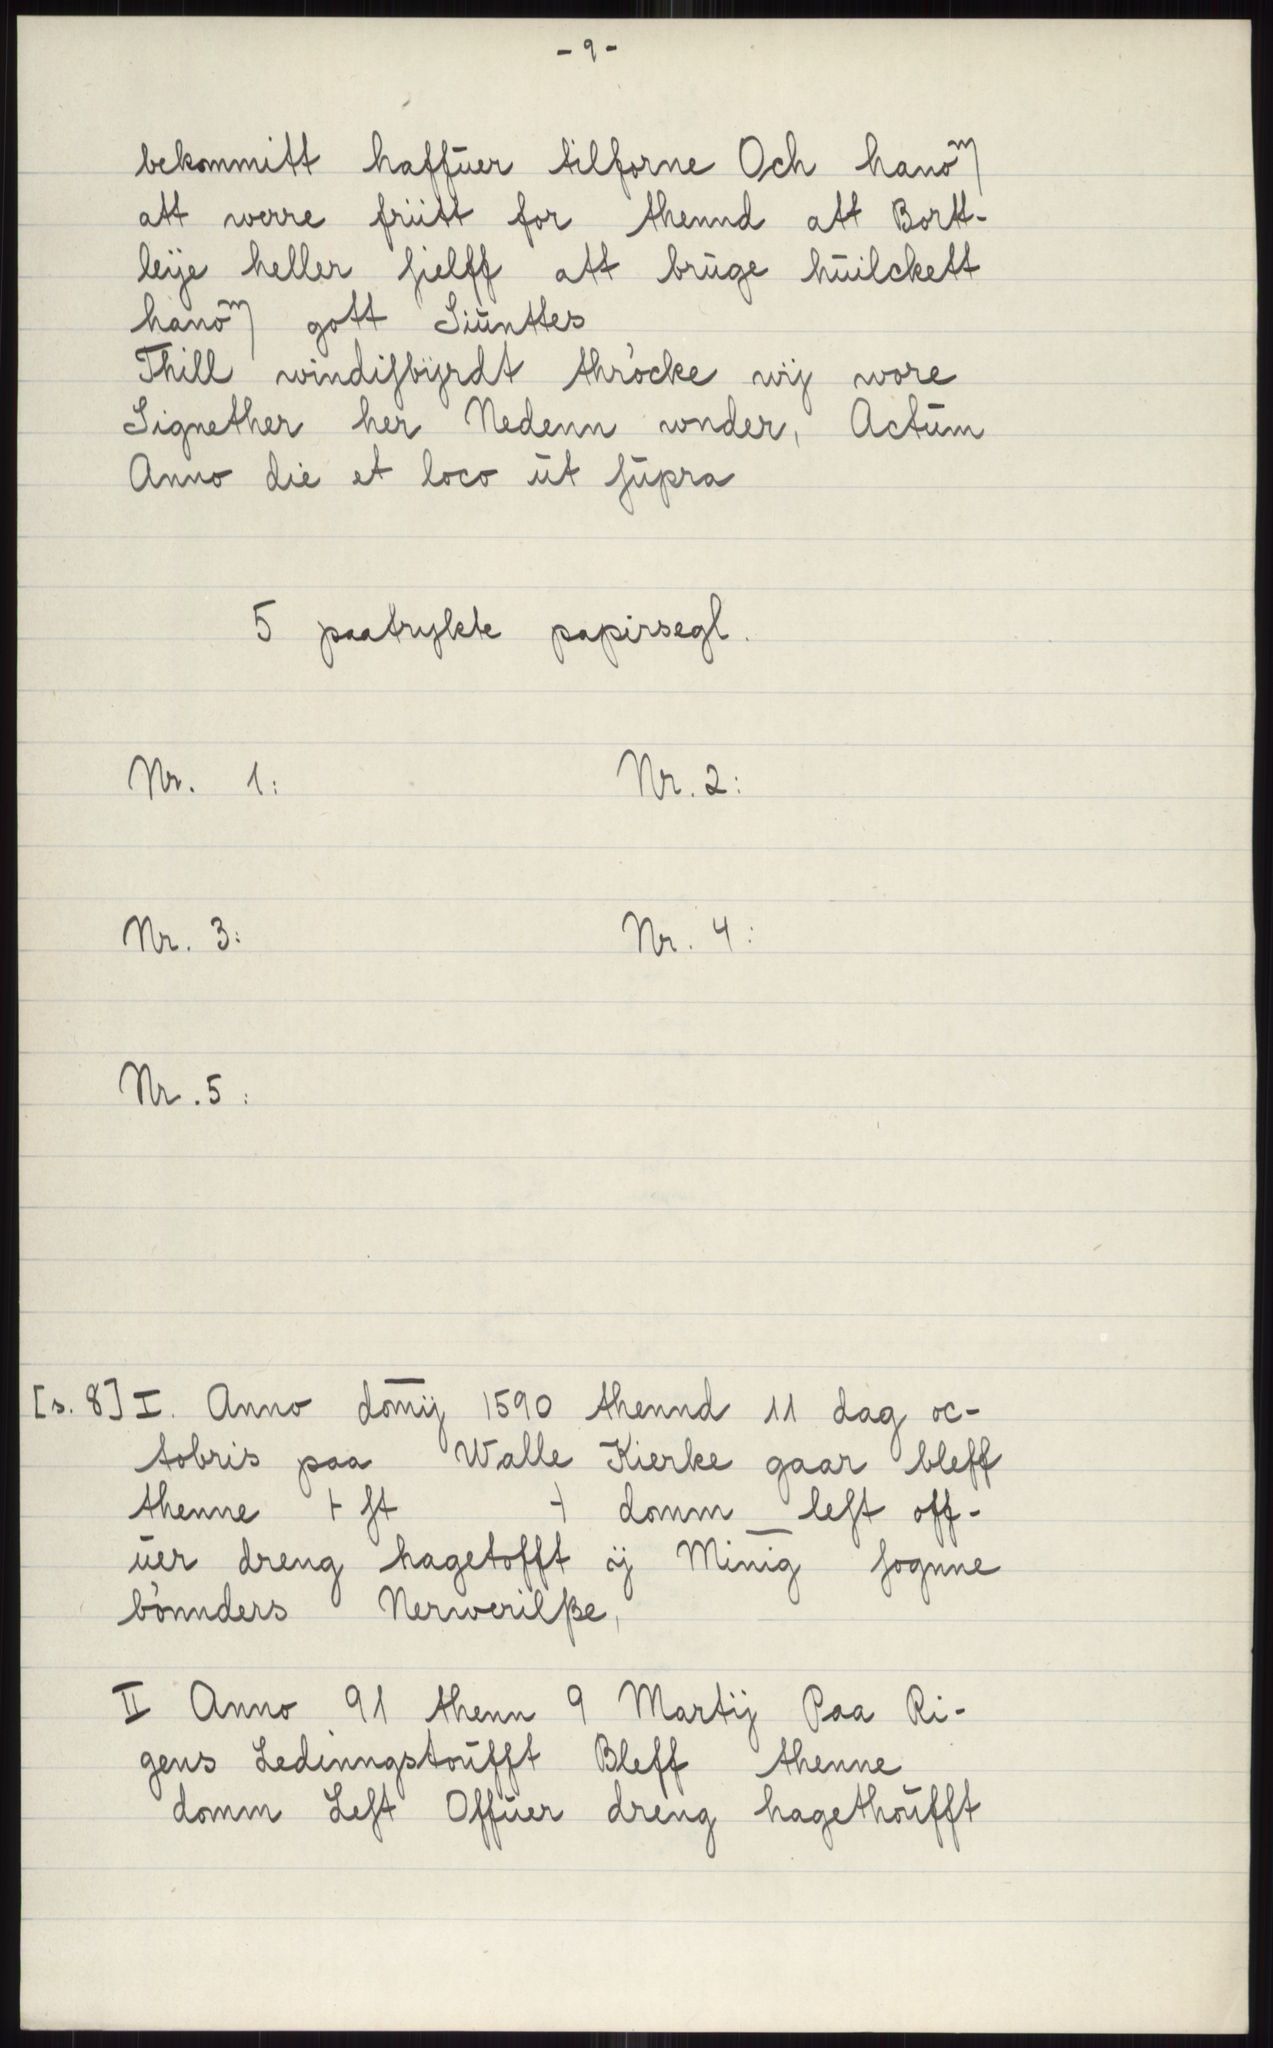 - 9 -
bekommitt haffūer tilforne Och hanōm
att werre friitt for thennd att Bortt-
leije heller ſielff att brūge hūilckett
hanōm gott Siūnttes
Thill windiſbijrdt thrócke wij wore
Signether her Nedenn wnder, Actūm
Anno die et loco ūt ſūpra
5 paatrykte papirsegl.
Nr. 1:
Nr. 2:
Nr. 3:
Nr. 4:
Nr. 5:
[s. 8] I. Anno dom̅ij 1590 thennd 11 dag oc-
tobris paa Walle Kierke gaar bleff
thenne ⊢ ſt ⊣ domm leſt off-
ūer dreng hagetofft ij Min̅ig ſognne
bónnders Nerwerilße,
II Anno 91 thenn 9 Martij Paa Ri-
gens Ledinngstoūfft Bleff thenne
domm Leſt Offūer dreng hagethoūfft